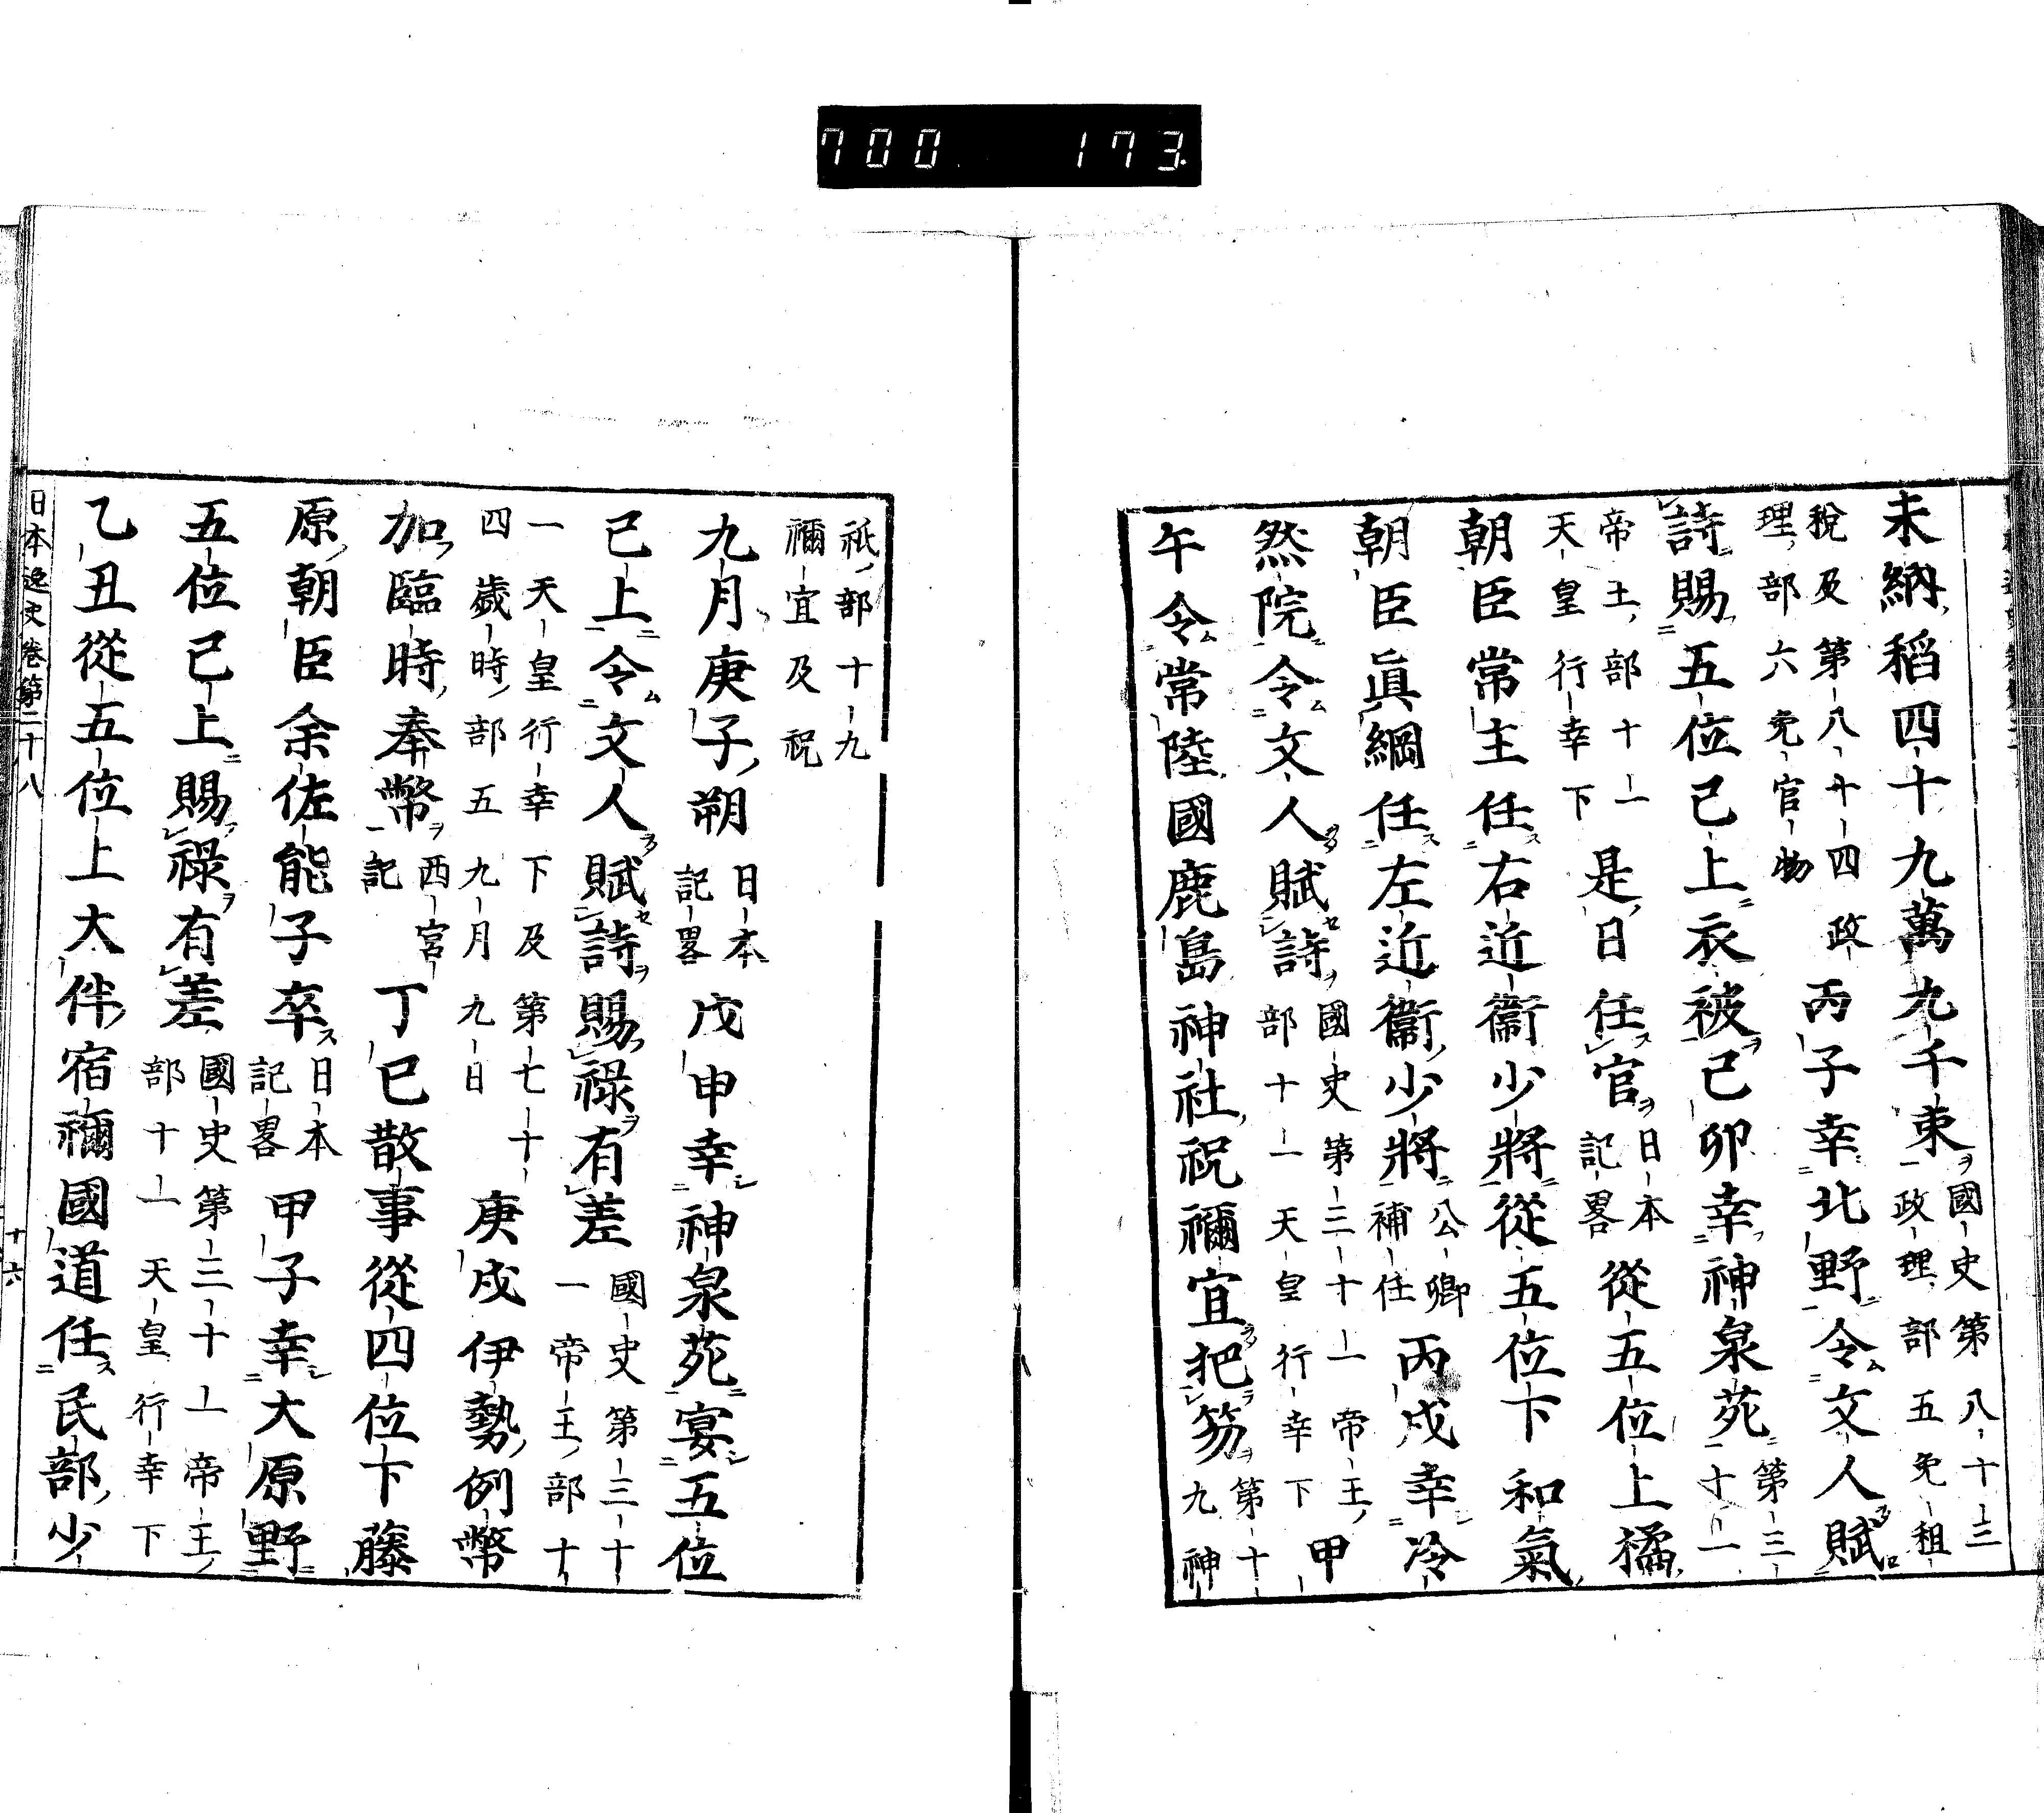 700 173
未納稻四十九萬九千束國史第八十三政理部五免租
税及第八十四政理部六免官物丙子幸北野令文人賦
詩賜五位已上衣被己卯幸神泉苑第三十一
帝王部十一天皇行幸下是日任官日本記畧從五位上橘
朝臣常主任右近衞少將從五位下和氣
朝臣眞綱任左近衞少將公卿補任丙戌幸冷
然院令文人賦詩國史第三十一帝王部十一天皇行幸下甲
午令常陸國鹿島神社祝禰宜把笏第十九神
祇部十九禰宜及祝
九月庚子朔日本記畧戊申幸神泉苑宴五位
已上令文人賦詩賜祿有差國史第三十一帝王部十
一天皇行幸下及第七十四歲時部五九月九日庚戌伊勢例幣
加臨時奉幣西宮記丁巳散事從四位下藤
原朝臣余佐能子卒日本記畧甲子幸大原野
五位已上賜祿有差國史第三十一帝王部十一天皇行幸下
乙丑從五位上大伴宿禰國道任民部少
日本逸史卷第二十八 十六